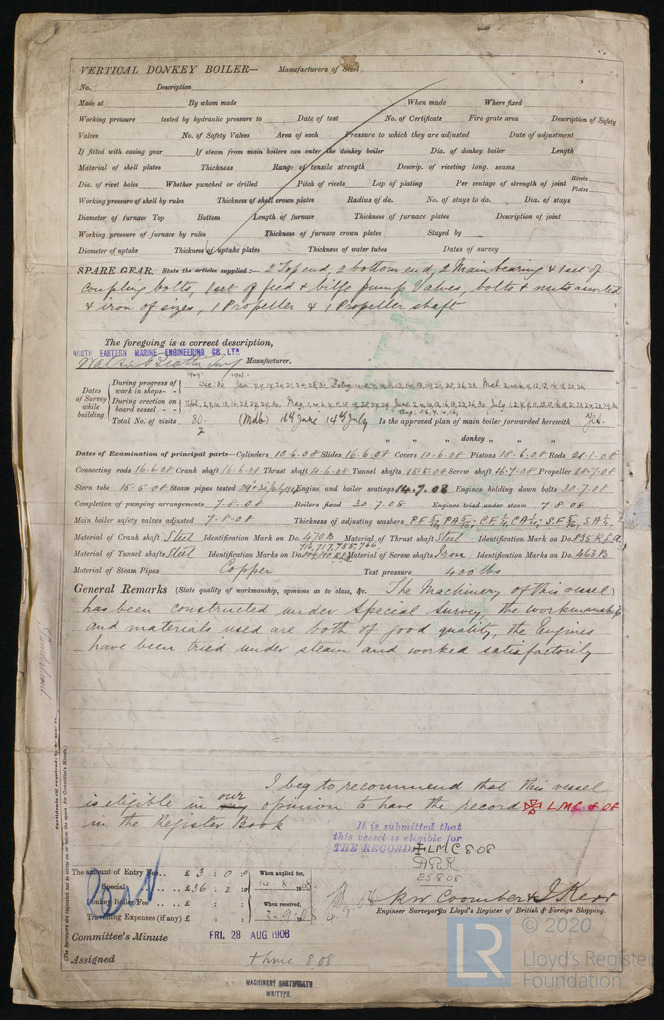 VERTICAL DONKEY BOILER— Manufacturers of Steel
No. Description
Made at By whom made When made Where fixed
Working pressure tested by hydraulic pressure to Date of test No. of Certificate Fire grate area Description of Safety
Valves No. of Safety Valves Area of each Pressure to which they are adjusted Date of adjustment
If fitted with easing gear If steam from main boilers can enter the donkey boiler Dia. of donkey boiler Length
Material of shell plates Thickness Range of tensile strength Descrip. of riveting long. seams
Dia. of rivet holes Whether punched or drilled Pitch of rivets Lap of plating Per centage of strength of joint Rivets Plates
Working pressure of shell by rules Thickness of shell crown plates Radius of do. No. of stays to do. Dia. of stays
Diameter of furnace Top Bottom Length of furnace Thickness of furnace plates Description of joint
Working pressure of furnace by rules Thickness of furnace crown plates Stayed by
Diameter of uptake Thickness of uptake plates Thickness of water tubes Dates of survey
SPARE GEAR. State the articles supplied:— 2 Top end, 2 bottom end, 2 Main bearing & 1 set of
coupling bolts, 1 set of feed & bilge pump valves, bolts & nuts assorted
& iron of sizes, 1 Propeller & 1 Propeller shaft
The foregoing is a correct description,
NORTH EASTERN MARINE ENGINEERING Co. LTD.
Manufacturer.
Dates of Survey while building
During progress of work in shops--
During erection on board vessel---
Total No. of visits 80. (Mdo) 16th June 14th July Is the approved plan of main boiler forwarded herewith Yes.
" " " donkey " " "
Dates of Examination of principal parts—Cylinders 10.6.08 Slides 16.6.08 Covers 10.6.08 Pistons 18.6.08 Rods 21.1.08
Connecting rods 16.6.08 Crank shaft 16.6.08 Thrust shaft 4.6.08 Tunnel shafts 15.5.08 Screw shaft 16.7.08 Propeller 18.7.08
Stern tube 15.6.08 Steam pipes tested Engine and boiler seatings 14.7.08 Engines holding down bolts 30.7.08
Completion of pumping arrangements 7.8.08 Boilers fixed 30.7.08 Engines tried under steam 7.8.08
Main boiler safety valves adjusted 7.8.08 Thickness of adjusting washers
Material of Crank shaft Steel Identification Mark on Do. 470B Material of Thrust shaft Steel Identification Mark on Do.
Material of Tunnel shafts Steel Identification Marks on Do. 716,717,755,766 Material of Screw shafts Iron Identification Marks on Do. 463B
Material of Steam Pipes Copper Test pressure 400 lbs
General Remarks (State quality of workmanship, opinions as to class, &c. The Machinery of this vessel
has been constructed under special survey, the workmanship
and materials used are both of good quality, the Engines
have been tried under steam and worked satisfactorily
I beg to recommend that this vessel
is eligible in our opinion to have the record ✠ LMC 8 08
in the Register Book
It is submitted that
this vessel is eligible for
THE RECORD. ✠ LMC 8 08
25.8.08
The amount of Entry Fee.. £ 3 : 0 : 0 When applied for,
Special £36 : 2 : 14.8.08
Donkey Boiler Fee £ : : When received,
Travelling Expenses (if any) £ : : 3.9.08
RW Coomber & J Kerr
Engineer Surveyors to Lloyd's Register of British & Foreign Shipping.
Committee's Minute FRI. 28 AUG 1908
Assigned + LMC 8 08
MACHINERY CERTIFICATE
WRITTEN.
Sunderland
© 2020
LR Lloyd's Register
Foundation